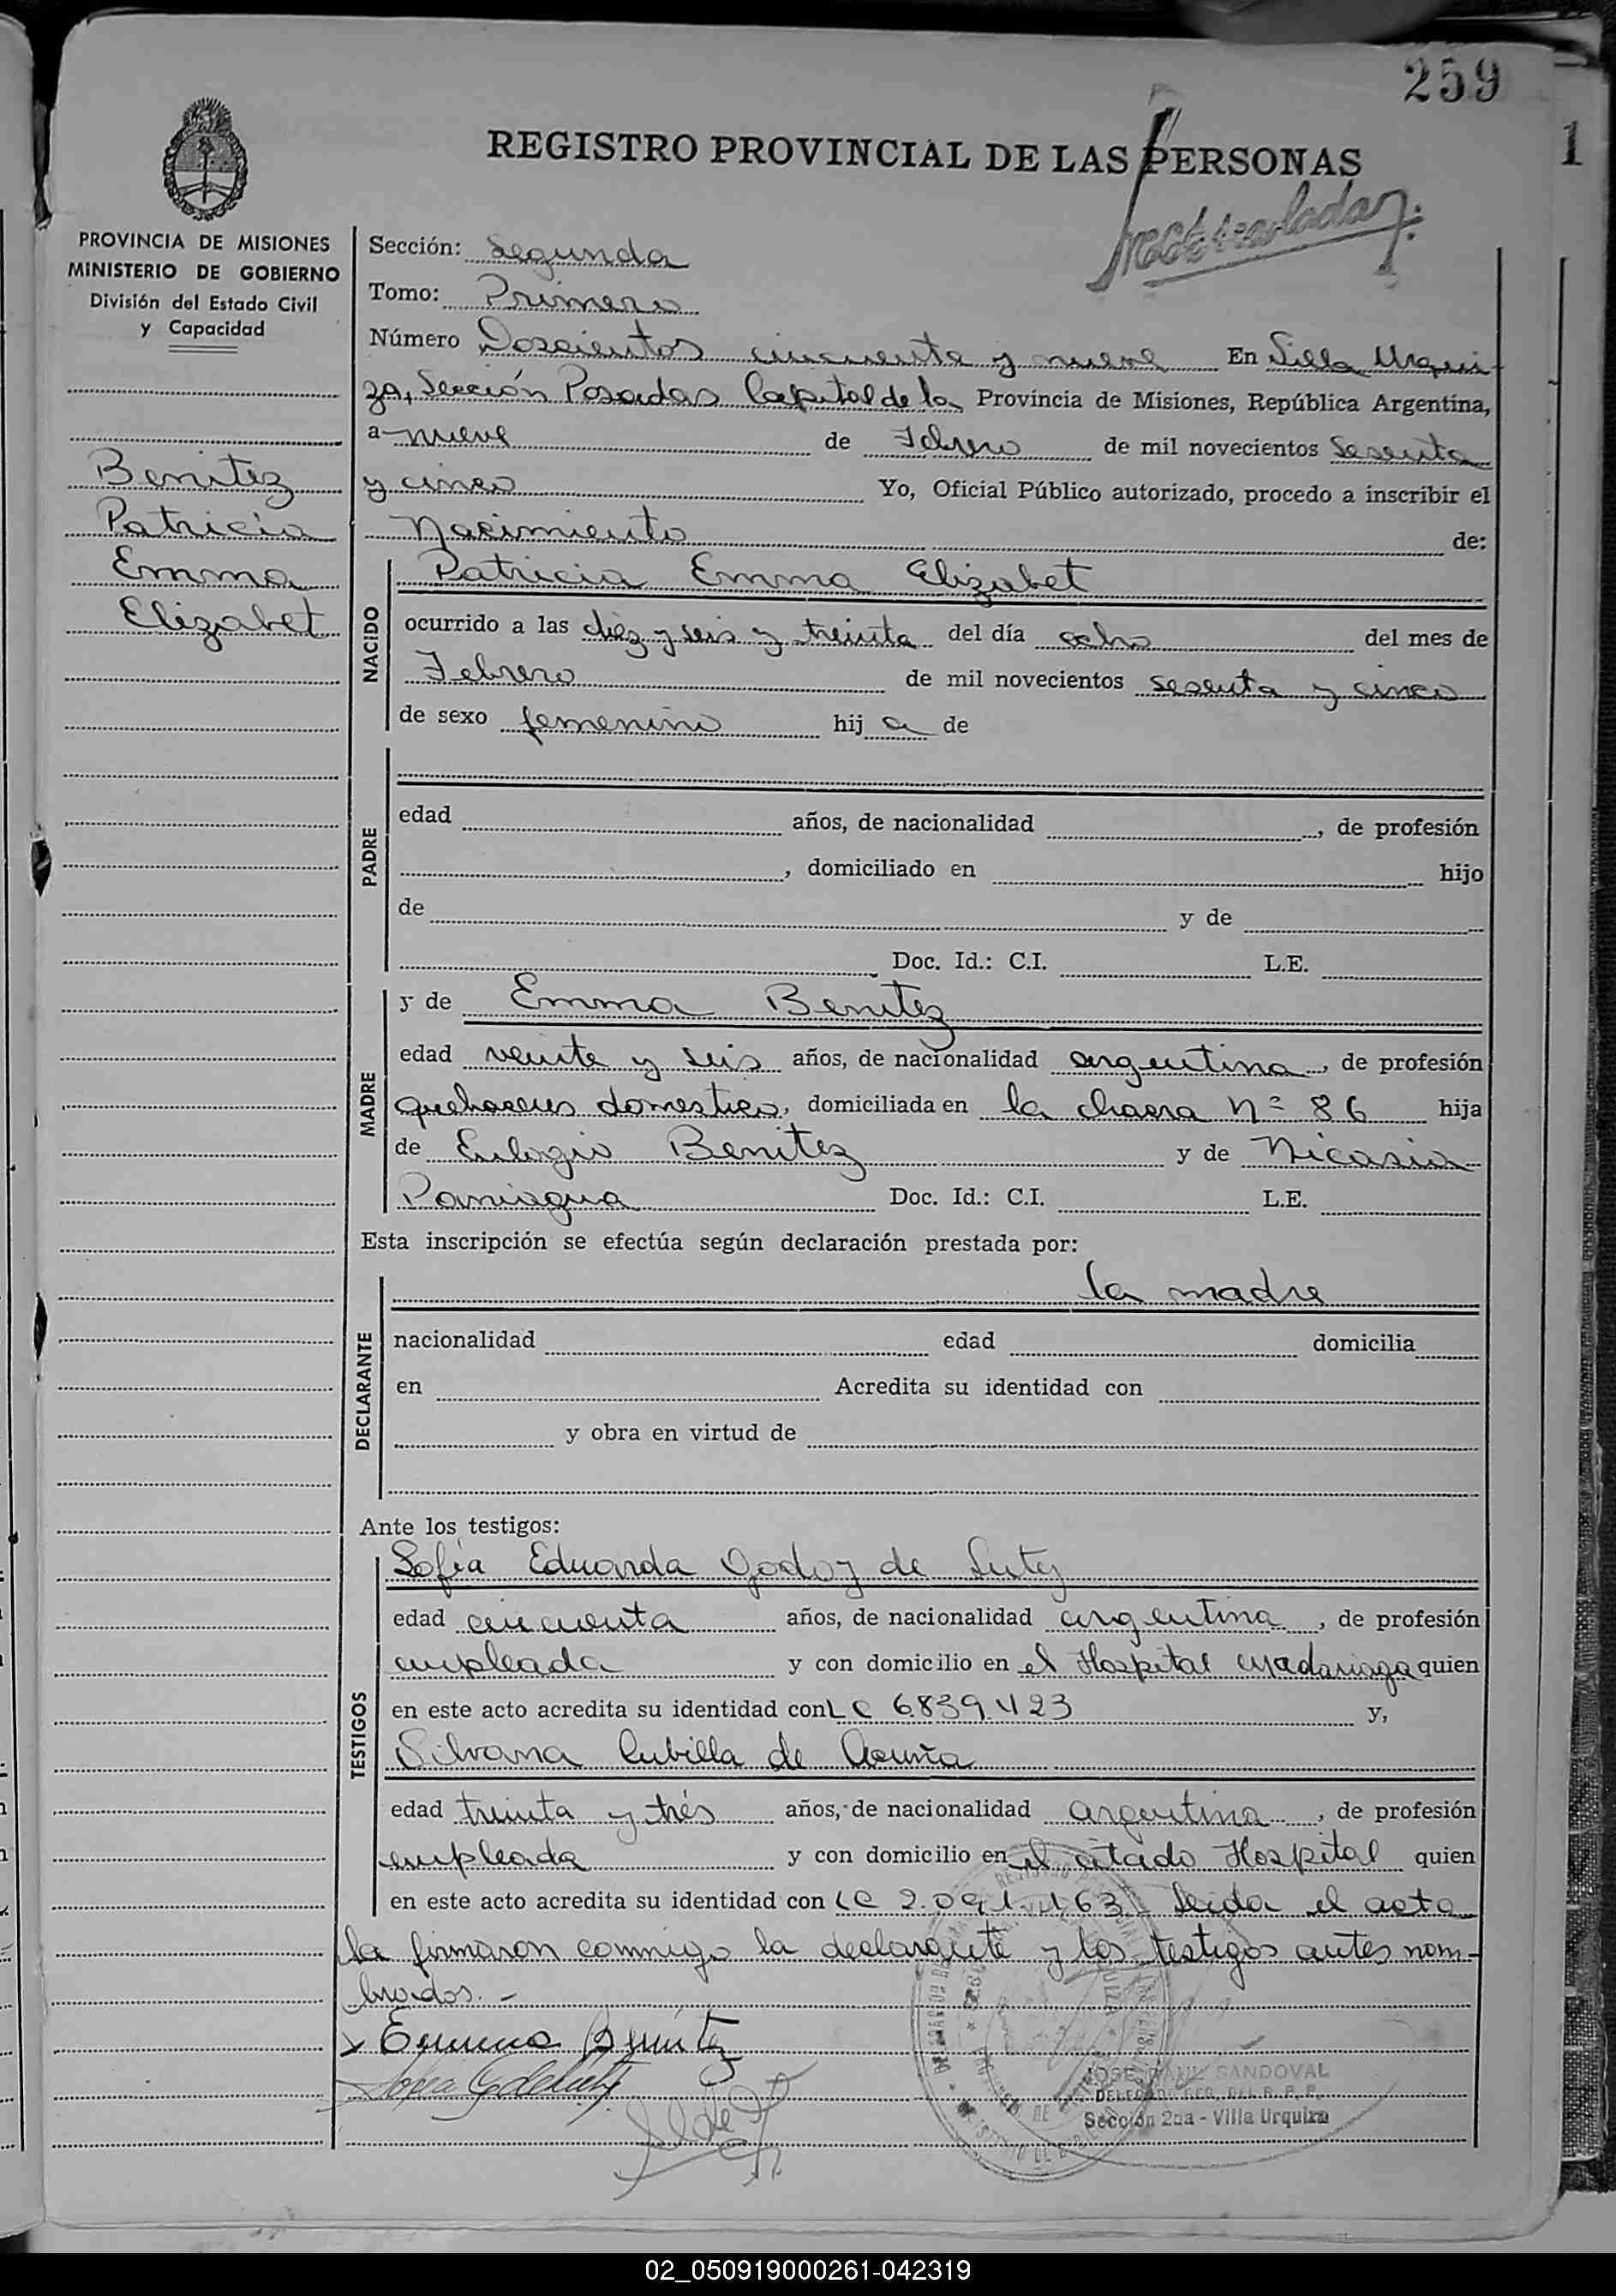 259
1
REGISTRO PROVINCIAL DE LAS PERSONAS
PROVINCIA DE MISIONES
MINISTERIO DE GOBIERNO
División del Estado Civil
y Capacidad
Benitez
Patricia
Emma
Elizabet
Sección: Segunda
Tomo: Primero
Número Doscientos cincuenta y nueve En Villa Urqui-
za, Sección Posadas Capital de la Provincia de Misiones, República Argentina,
a nueve de Febrero de mil novecientos sesenta
y cinco Yo, Oficial Público autorizado, procedo a inscribir el
Nacimiento de:
NACIDO
Patricia Emma Elizabet
ocurrido a las diez y seis y treinta del día ocho del mes de
Febrero de mil novecientos sesenta y cinco
de sexo femenino hija de
PADRE
edad años, de nacionalidad , de profesión
, domiciliado en hijo
de y de
Doc. Id.: C.I. L.E.
MADRE
y de Emma Benitez
edad veinte y seis años, de nacionalidad argentina, de profesión
quehaceres domesticos, domiciliada en la chacra nº 86 hija
de Eulogio Benitez y de Nicasia
Paniagua Doc. Id.: C.I. L.E.
Esta inscripción se efectúa según declaración prestada por:
DECLARANTE
la madre
nacionalidad edad domicilia
en Acredita su identidad con
y obra en virtud de
Ante los testigos:
TESTIGOS
Sofía Eduarda Godoy de
edad cincuenta años, de nacionalidad argentina, de profesión
empleada y con domicilio en el Hospital Madariaga quien
en este acto acredita su identidad con LC 6.839.423 y,
Silvana Cubilla de Acuña
edad treinta y trés años, de nacionalidad argentina, de profesión
empleada y con domicilio en el citado Hospital quien
en este acto acredita su identidad con LC 2.091.163 Leida el acta
la firmaron conmigo la declarante y los testigos antes nom-
brados.-
Emma Benítez
SANDOVAL
Sección 2da - Villa Urquiza
02_050919000261-042319